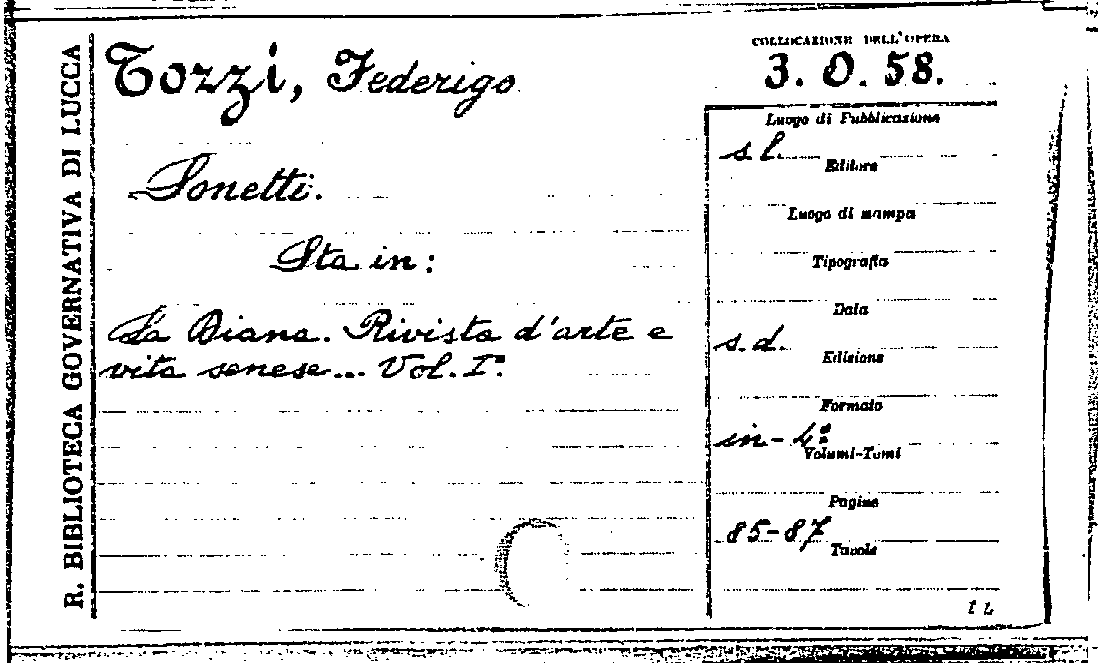 R. BIBLIOTECA GOVERNATIVA DI LUCCA
Tozzi, Federigo
Sonetti.
Sta in:
La Diana. Rivista d'arte e
vita senese... Vol. I°
COLLOCAZIONE DELL'OPERA
3. O. 58.
Luogo di Pubblicazione
s. l.
Editore
Luogo di stampa
Tipografia
Data
s. d.
Edizione
Formato
in-4°
Volumi-Tomi
Pagine
85-87
Tavole